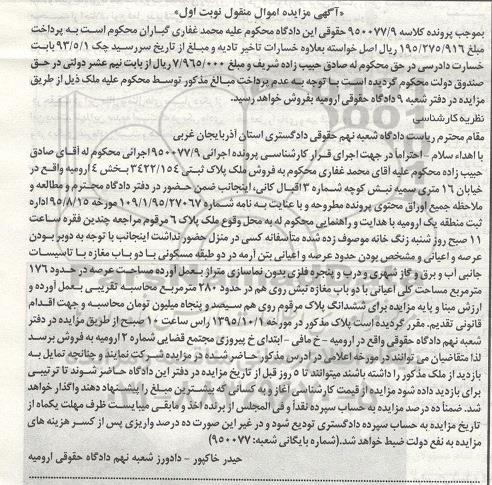 «آگهی مزایده اموال منقول نوبت اول»
بموجب پرونده کلاسه ۹۵۰۰۷۷/۹ حقوقی این دادگاه محکوم علیه محمد غفاری گباران محکوم است به پرداخت
مبلغ ۱۹۵/۲۷۵/۹۱۶ ریال اصل خواسته بعلاوه خسارات تاخیر تادیه و مبلغ از تاریخ سررسید چک ۹۳/۵/۱ بابت
خسارت دادرسی در حق محکوم له صادق حبیب زاده شریف و مبلغ ۷/۹۶۵/۰۰۰ ریال از بابت نیم عشر دولتی در حق
صندوق دولت محکوم گردیده است با توجه به عدم پرداخت مبالغ مذکور توسط محکوم علیه ملک ذیل از طریق
مزایده در دفتر شعبه ۹ دادگاه حقوقی ارومیه بفروش خواهد رسید.
نظریه کارشناسی
مقام محترم ریاست دادگاه شعبه نهم حقوقی دادگستری استان آذربایجان غربی
با اهداء سلام – احتراماً در جهت اجرای قرار کارشناسی پرونده اجرائی ۹۵۰۰۷۷/۹ اجرائی محکوم له آقای صادق
حبیب زاده محکوم علیه آقای محمد غفاری محکوم به فروش ملک پلاک ثبتی ۳۴۲۲/۱۵۴ بخش ۴ ارومیه واقع در
خیابان ۱۶ متری سمیه نبش کوچه شماره ۳ اقبال کانی، اینجانب ضمن حضور در دفتر دادگاه محترم و مطالعه و
ملاحظه جمیع اوراق محتوی پرونده مطروحه و با عنایت به نامه شماره ۱۰۹/۱/۹۵/۲۷۰۶۷ مورخه ۹۵/۸/۱۵ اداره
ثبت منطقه یک ارومیه با هدایت و راهنمایی محکوم له به محل وقوع ملک پلاک ۶ مرقوم مراجعه چندین فقره ساعت
۱۱ صبح روز شنبه زنگ خانه موصوف زده شده متأسفانه کسی در منزل حضور نداشت اینجانب با توجه به دوبر بودن
عرصه و اعیانی و مشخص بودن حدود عرصه و اعیانی بتن آرمه در دو طبقه مسکونی با دو باب مغازه با تاسیسات
جانبی آب و برق و گاز شهری و درب و پنجره فلزی بدون نماسازی متراژ بعمل آورده مساحت عرصه در حدود ۱۷۶
مترمربع مساحت کلی اعیانی با دو باب مغازه نبش روی هم در حدود ۲۸۰ مترمربع محاسبه تقریبی بعمل آورده و
ارزش مبنا و پایه مزایده برای ششدانگ پلاک مرقوم روی هم سیصد و پنجاه میلیون تومان محاسبه و جهت اقدام
قانونی تقدیم. مقرر گردیده است پلاک مذکور در مورخه ۱۳۹۵/۱۰/۱ راس ساعت ۱۰ صبح از طریق مزایده در دفتر
شعبه نهم دادگاه حقوقی واقع در ارومیه – خ مافی – ابتدای خ پیروزی مجتمع قضایی شماره ۲ ارومیه به فروش برسد
لذا متقاضیان می توانند در مورخه اعلامی در آدرس مذکور حاضر شده در مزایده شرکت نمایند و چنانچه تمایل به
بازدید از ملک مذکور را داشته باشند میتوانند تا ۵ روز قبل از تاریخ مزایده در دفتر این دادگاه حاضر شوند تا ترتیبی
برای بازدید داده شود مزایده از قیمت کارشناسی آغاز و به کسانی که بیشترین مبلغ را پیشنهاد دهند واگذار خواهد
شد. ضمناً ده درصد مزایده به حساب سپرده نقداً و فی المجلس از برنده اخذ و مابقی میبایست ظرف مهلت یکماه از
تاریخ مزایده به حساب سپرده دادگستری تودیع شود و در غیر این صورت ده درصد واریزی پس از کسر هزینه های
مزایده به نفع دولت ضبط خواهد شد.(شماره بایگانی شعبه: ۹۵۰۰۷۷)
حیدر خاکپور – دادورز شعبه نهم دادگاه حقوقی ارومیه